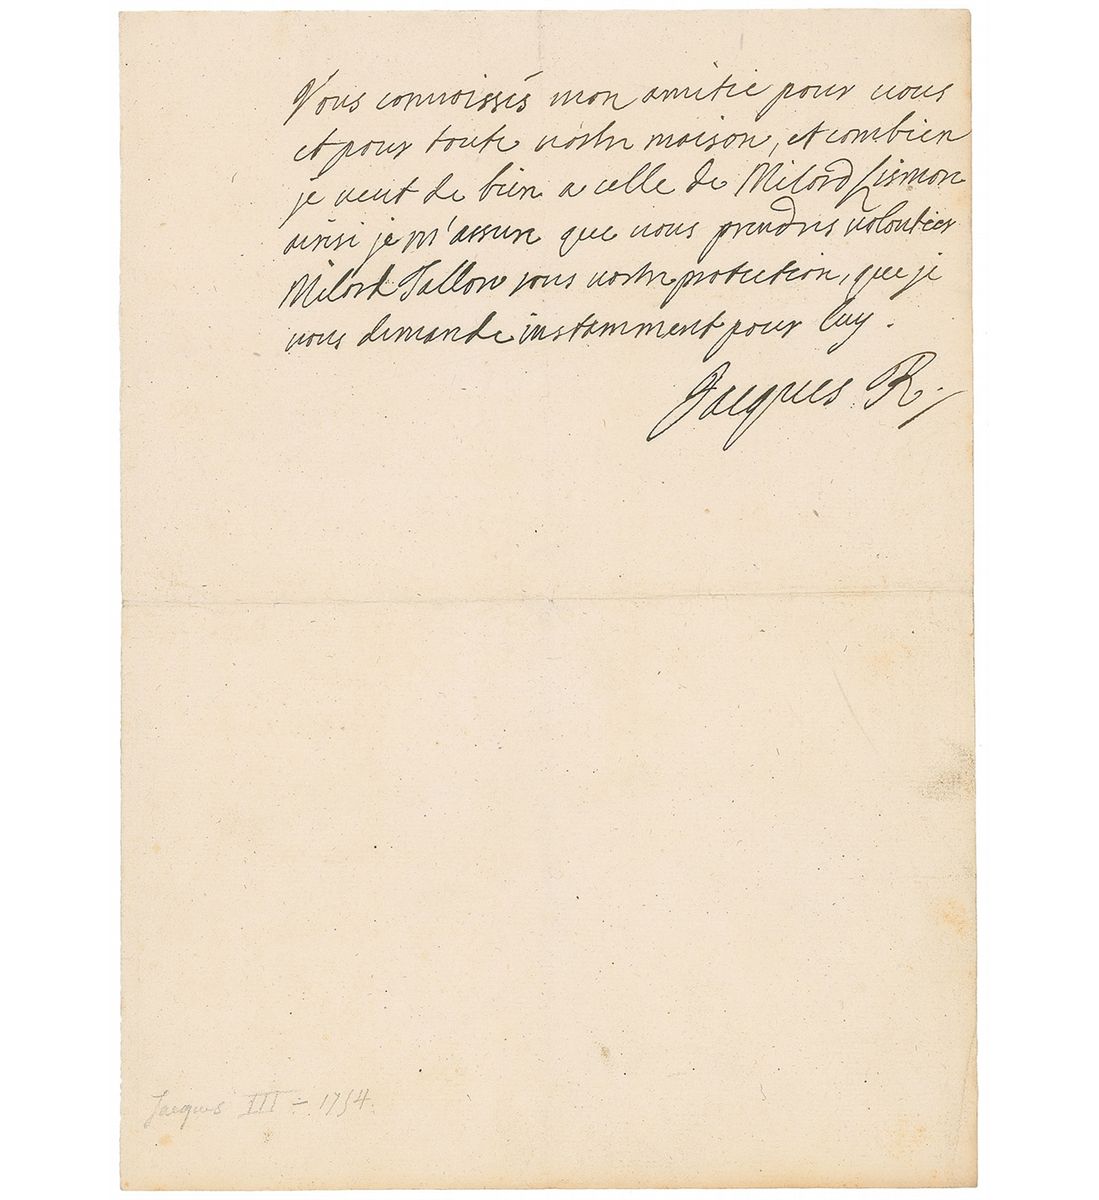 Vous connoissés mon amitie pour vous
et pour toute vostre maison, et combien
je veut de bien a celle de Milord Lismon
ainsi je m'assure que vous prendrés volontier
Milord Tallow sous vostre protection, que je
vous demande instamment pour luy.
Jacques R.
Jacques III = 1754